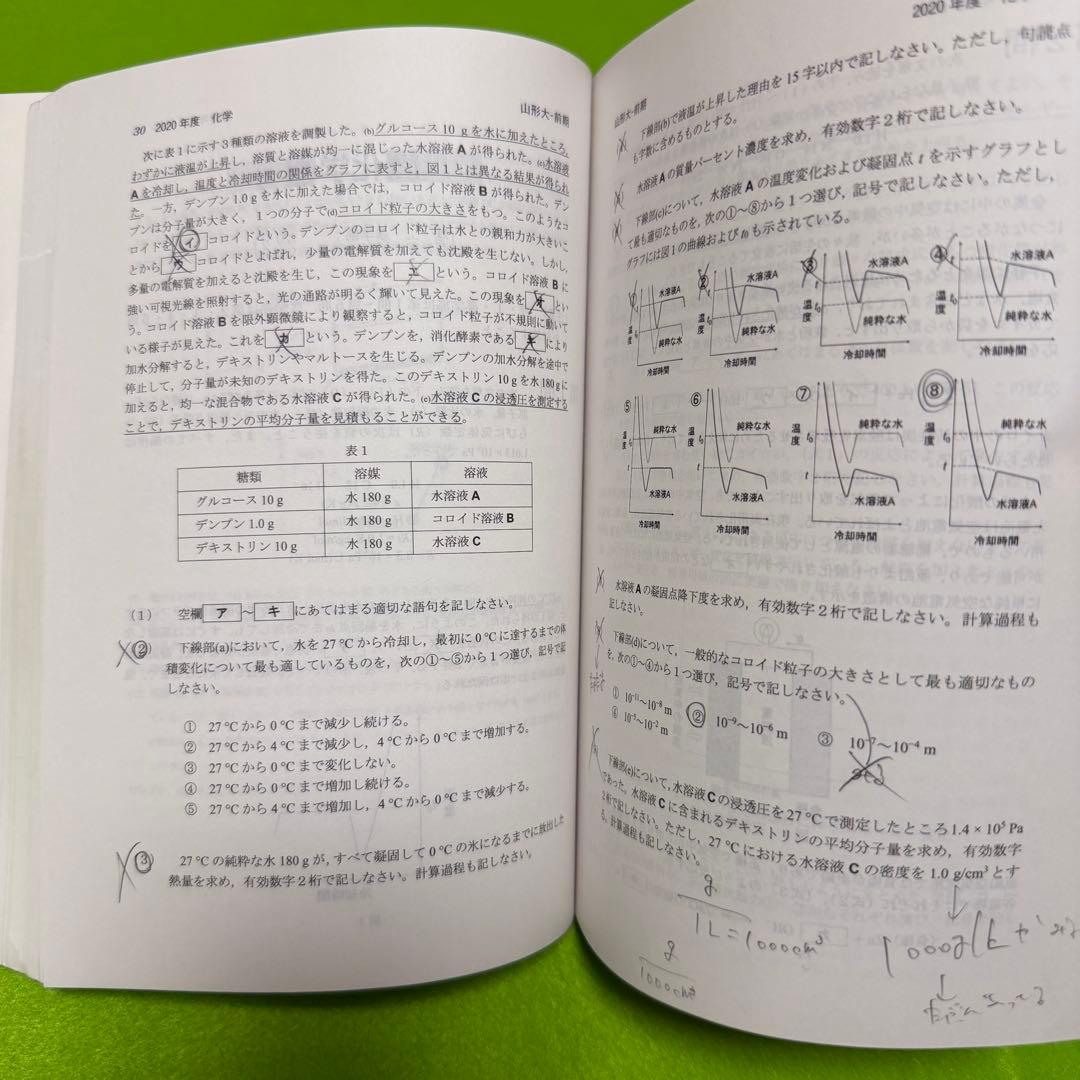 30 2020年度 化学
山形大-前期
次に表1に示す3種類の溶液を調製した。(b)グルコース10 gを水に加えたところ,
わずかに液温が上昇し,溶質と溶媒が均一に混じった水溶液Aが得られた。(c)水溶液
Aを冷却し,温度と冷却時間の関係をグラフに表すと,図1とは異なる結果が得られ
た。一方,デンプン1.0 gを水に加えた場合では,コロイド溶液Bが得られた。デン
プンは分子量が大きく,1つの分子で(d)コロイド粒子の大きさをもつ。このようなコ
ロイドを イ コロイドという。デンプンのコロイド粒子は水との親和力が大きいこ
とから ウ コロイドとよばれ,少量の電解質を加えても沈殿を生じない。しかし,
多量の電解質を加えると沈殿を生じ,この現象を エ という。コロイド溶液Bに
強い可視光線を照射すると,光の通路が明るく輝いて見えた。この現象を オ とい
う。コロイド溶液Bを限外顕微鏡により観察すると,コロイド粒子が不規則に動いて
いる様子が見えた。これを カ という。デンプンを,消化酵素である キ により
加水分解すると,デキストリンやマルトースを生じる。デンプンの加水分解を途中で
停止して,分子量が未知のデキストリンを得た。このデキストリン10 gを水180 gに
加えると,均一な混合物である水溶液Cが得られた。(e)水溶液Cの浸透圧を測定する
ことで,デキストリンの平均分子量を見積もることができる。
表1
糖類 溶媒 溶液
グルコース10 g 水180 g 水溶液A
デンプン1.0 g 水180 g コロイド溶液B
デキストリン10 g 水180 g 水溶液C
(1) 空欄 ア ～ キ にあてはまる適切な語句を記しなさい。
(2) 下線部(a)において,水を27 ℃から冷却し,最初に0 ℃に達するまでの体
積変化について最も適しているものを,次の①～⑤から1つ選び,記号で記
しなさい。
① 27 ℃から0 ℃まで減少し続ける。
② 27 ℃から4 ℃まで減少し,4 ℃から0 ℃まで増加する。
③ 27 ℃から0 ℃まで変化しない。
④ 27 ℃から0 ℃まで増加し続ける。
⑤ 27 ℃から4 ℃まで増加し,4 ℃から0 ℃まで減少する。
(3) 27 ℃の純粋な水180 gが,すべて凝固して0 ℃の氷になるまでに放出した
熱量を求め,有効数字2桁で記しなさい。計算過程も記しなさい。
2020年度 化学
山形大-前期
下線部(b)で液温が上昇した理由を15字以内で記しなさい。ただし,句読点
も字数に含めるものとする。
水溶液Aの質量パーセント濃度を求め,有効数字2桁で記しなさい。
下線部(c)について,水溶液Aの温度変化および凝固点tを示すグラフとし
て最も適切なものを,次の①～⑧から1つ選び,記号で記しなさい。ただし,
グラフには図1の曲線およびt₀も示されている。
② ③ ④
水溶液A 水溶液A 水溶液A 水溶液A
t t₀ 温度
純粋な水 純粋な水 純粋な水 純粋な水
冷却時間 冷却時間 冷却時間 冷却時間
⑤ ⑥ ⑦ ⑧
純粋な水 純粋な水 純粋な水 純粋な水
温度 t₀ t
水溶液A 水溶液A 水溶液A 水溶液A
冷却時間 冷却時間 冷却時間 冷却時間
水溶液Aの凝固点降下度を求め,有効数字2桁で記しなさい。計算過程も
記しなさい。
下線部(d)について,一般的なコロイド粒子の大きさとして最も適切なもの
を,次の①～④から1つ選び,記号で記しなさい。
① 10⁻¹¹～10⁻⁸ m ② 10⁻⁹～10⁻⁶ m ③ 10⁻⁷～10⁻⁴ m
④ 10⁻⁵～10⁻² m
下線部(e)について,水溶液Cの浸透圧を27 ℃で測定したところ1.4 × 10⁵ Pa
であった。水溶液Cに含まれるデキストリンの平均分子量を求め,有効数字
2桁で記しなさい。ただし,27 ℃における水溶液Cの密度を1.0 g/cm³とす
る。計算過程も記しなさい。
g
1L = 1000cm³
g
1000cm³
1000g